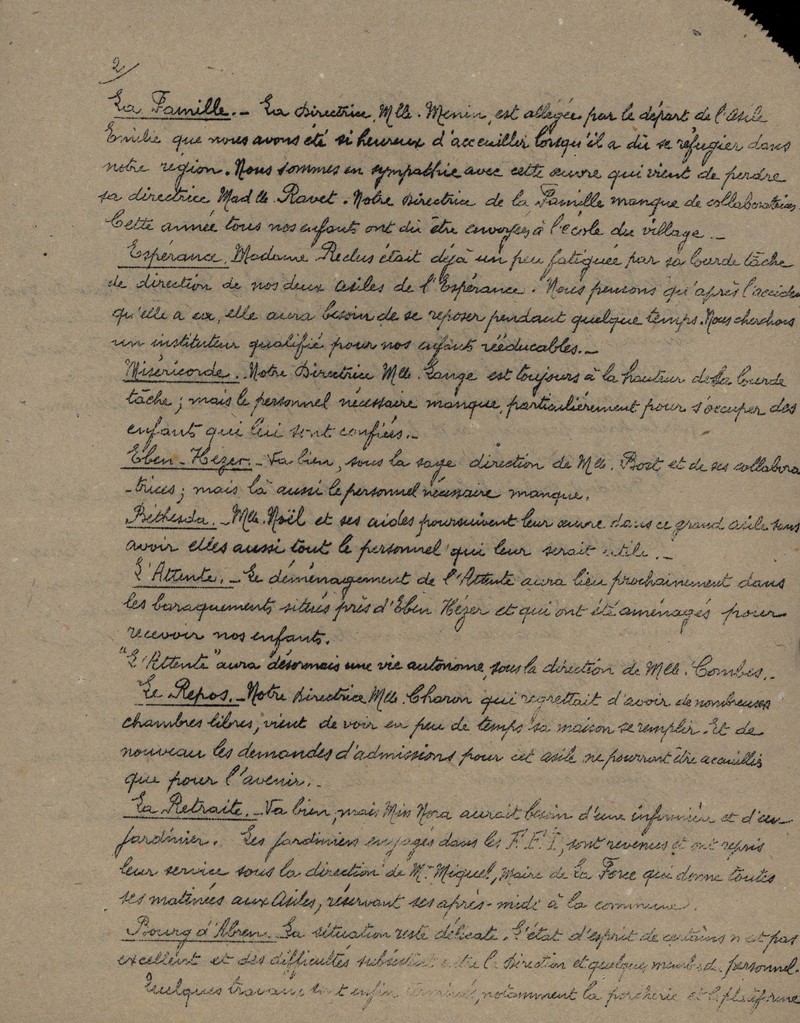 2/
La Famille.- La Directrice, Mlle. Menin, est allégée par le départ de l'Asile
Emilie que nous avons été si heureux d'accueiller lorsqu'il a dû se réfugier dans
notre region. Nous sommes en sympathie avec cette œuvre qui vient de perdre
sa directrice Madlle Ravet. Notre Directrice de la Famille manque de collaboratrices.
Cette année tous nos enfants ont dû être envoyés à l'école du village.-
Espérance. Madame Reclus était déjà un peu fatiguée par sa lourde tâche
de direction de nos deux asiles de l'Espérance. Nous pensons qu'après l'accident
qu'elle a eu, elle aura besoin de se reposer pendant quelque temps. Nous cherchons
un instituteur qualifié pour nos enfants rééducables.-
Miséricorde.. Notre Directrice Mlle. Lange est toujours à la hauteur de sa lourde
tâche; mais le personnel nécessaire manque, particulièrement pour s'occuper des
enfants qui lui sont confiés.-
Eben-Hézer.- Va bien, sous la sage direction de Mlle. Bost et de ses collabora
-trices; mais là aussi le personnel nécessaire manque.
Béthesda.- Mlle. Noël et ses aides poursuivent leur œuvre dans ce grand asile sans
avoir elles aussi tout le personnel qui leur serait utile.-
L'Attente.- Le déménagement de l'Attente aura lieu prochainement dans
les baraquements situés près d'Eben Hézer et qui ont été aménagés pour
recevoir nos enfants.
"L'Attente" aura désormais une vie autonome, sous la direction de Mlle. Combes.-
Le Repos.- Notre Directrice Mlle. Charon qui regrettait d'avoir de nombreuses
chambres libres, vient de voir en peu de temps sa maison se remplir. Et de
nouveau les demandes d'admissions pour cet asile ne pourront être accueillis
que pour l'avenir.-
La Retraite.- Va bien, mais Miss Nora aurait besoin d'une infirmière et d'un
jardinier. Les jardiniers engagés dans les F.F.I, sont revenus et ont repris
leur service sous la direction de Mr Miquel, Maire de La Force qui donne toutes
ses matinées aux Asiles, réservant ses après-midi à la commune.
Bourg d'Abren. La situation reste délicate. L'état d'esprit de certains n'est pas
excellent et des difficultés subsistent entre la Direction et quelques membres du personnel.
Quelques travaux sont enfin terminés, notamment la porcherie et la plateforme